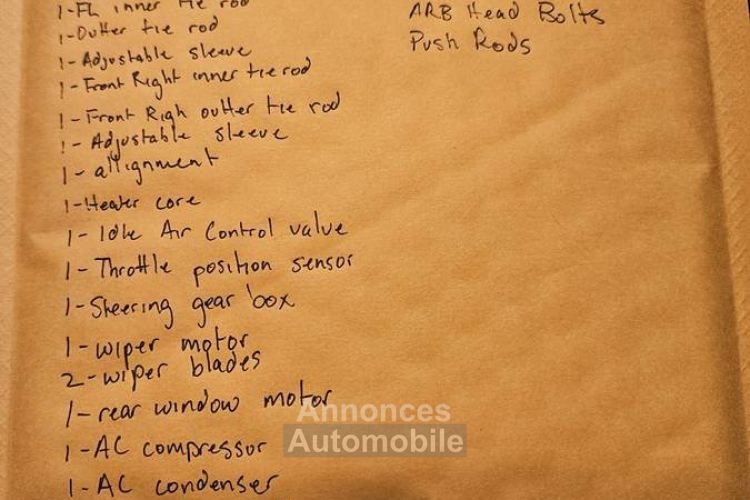 1-FL inner tie rod
1-Outter tie rod
1-Adjustable sleeve
1-Front Right inner tie rod
1-Front Righ outter tie rod
1-Adjustable sleeve
1-allignment
1-Heater core
1-Idle Air Control valve
1-Throttle position sensor
1-Steering gear box
1-wiper motor
2-wiper blades
1-rear window motor
1-AC compressor
1-AC condenser
ARB Head Bolts
Push Rods
Annonces
Automobile